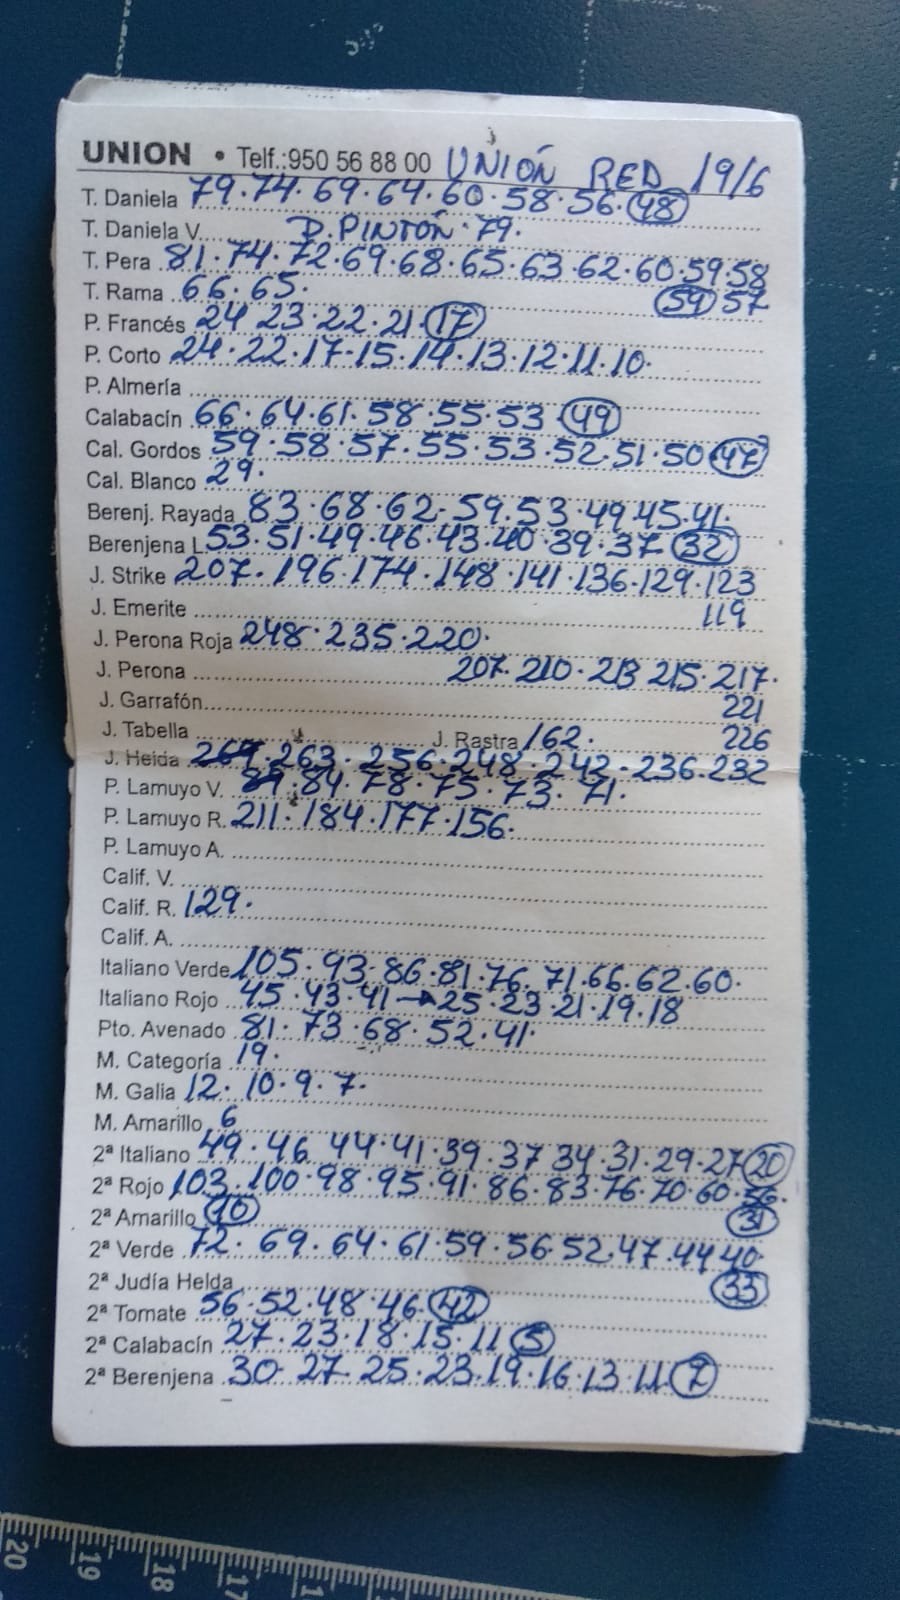 UNION • Telf.:950 56 88 00 UNIÓN RED 19/6
T. Daniela 79·74·69·64·60·58·56·48
T. Daniela V. D. PINTÓN·79·
T. Pera 81·74·72·69·68·65·63·62·60·59·58
T. Rama 66·65· 54 57
P. Francés 24 23·22·21·17
P. Corto 24·22·17·15·14·13·12·11·10·
P. Almería
Calabacín 66·64·61·58·55·53·49
Cal. Gordos 59·58·57·55·53·52·51·50 47
Cal. Blanco 29·
Berenj. Rayada 83·68·62·59·53·49·45·41·
Berenjena L 53·51·49·46·43·40·39·37·32
J. Strike 207·196·174·148·141·136·129·123
J. Emerite 119
J. Perona Roja 248·235·220·
J. Perona 207·210·213 215·217·
J. Garrafón 221
J. Tabella J. Rastra 162· 226
J. Helda 263·256·248·242·236·232
P. Lamuyo V. 84·78·75·73·71·
P. Lamuyo R. 211·184·177·156·
P. Lamuyo A.
Calif. V.
Calif. R. 129·
Calif. A.
Italiano Verde 105·93·86·81·76·71·66·62·60·
Italiano Rojo 45·43·41→25·23·21·19·18
Pto. Avenado 81·73·68·52·41·
M. Categoría 19·
M. Galia 12·10·9·7·
M. Amarillo 6
2ª Italiano 49·46 44·41·39·37 34·31·29·27 20
2ª Rojo 103·100·98·95·91·86·83·76·70·60·56·
2ª Amarillo 10 31
2ª Verde 72·69·64·61·59·56·52·47·44 40·
2ª Judía Helda 33
2ª Tomate 56·52·48·46·42
2ª Calabacín 27·23·18·15·11 5
2ª Berenjena 30·27·25·23·19·16·13·11·7
20 19 18 17